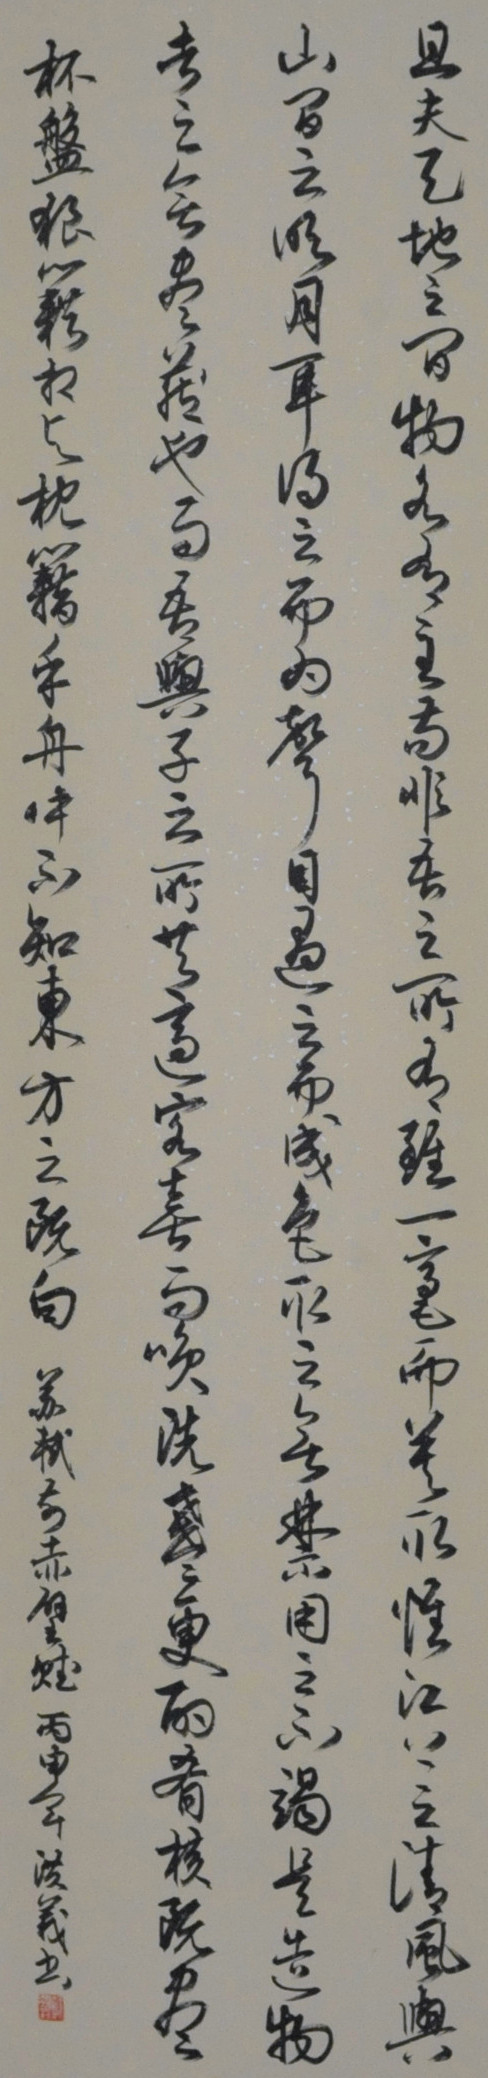 且夫天地之間物各有主苟非吾之所有雖一毫而莫取惟江上之清風與
山間之明月耳得之而為聲目遇之而成色取之無禁用之不竭是造物
者之無盡藏也而吾與子之所共適客喜而笑洗盞更酌肴核既盡
杯盤狼籍相与枕籍乎舟中不知東方之既白 蘇軾前赤壁賦 丙申年洪義书